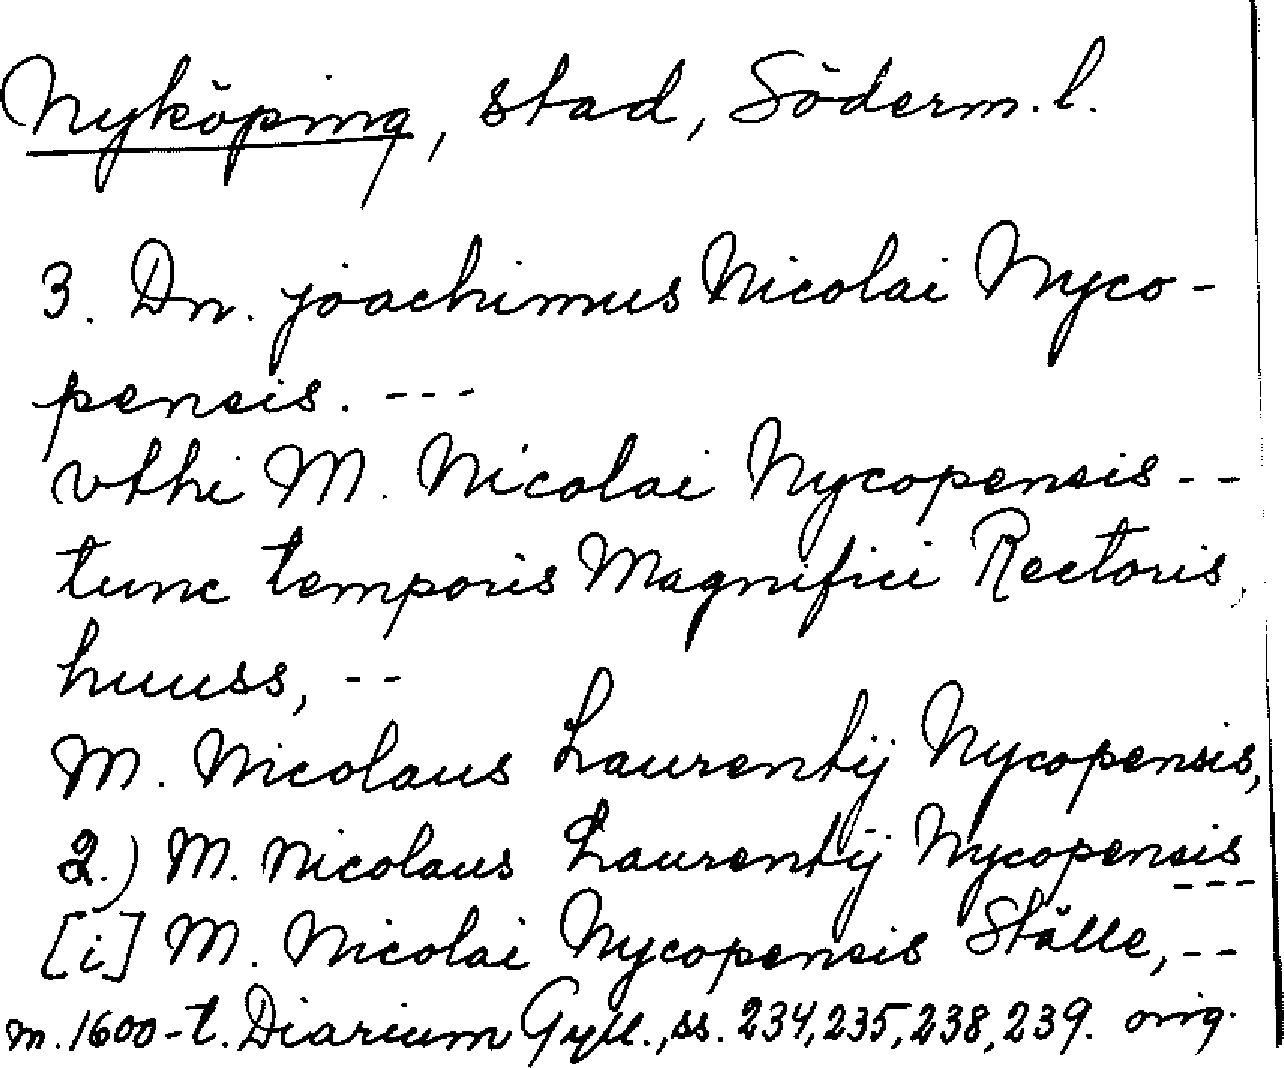 Nyköping, stad, Söderm.l.
3. Dn. joachimus Nicolai Nyco-
pensis. ---
vthi M. Nicolai Nycopensis --
tunc temporis Magnifici Rectoris,
huuss, --
M. Nicolaus Laurentij Nycopensis,
2.) M. Nicolaus Laurentij Nycopensis
---
[i] M. Nicolai Nycopensis Ställe, --
m. 1600-t. Diarium Gyll., ss. 234, 235, 238, 239. orig.